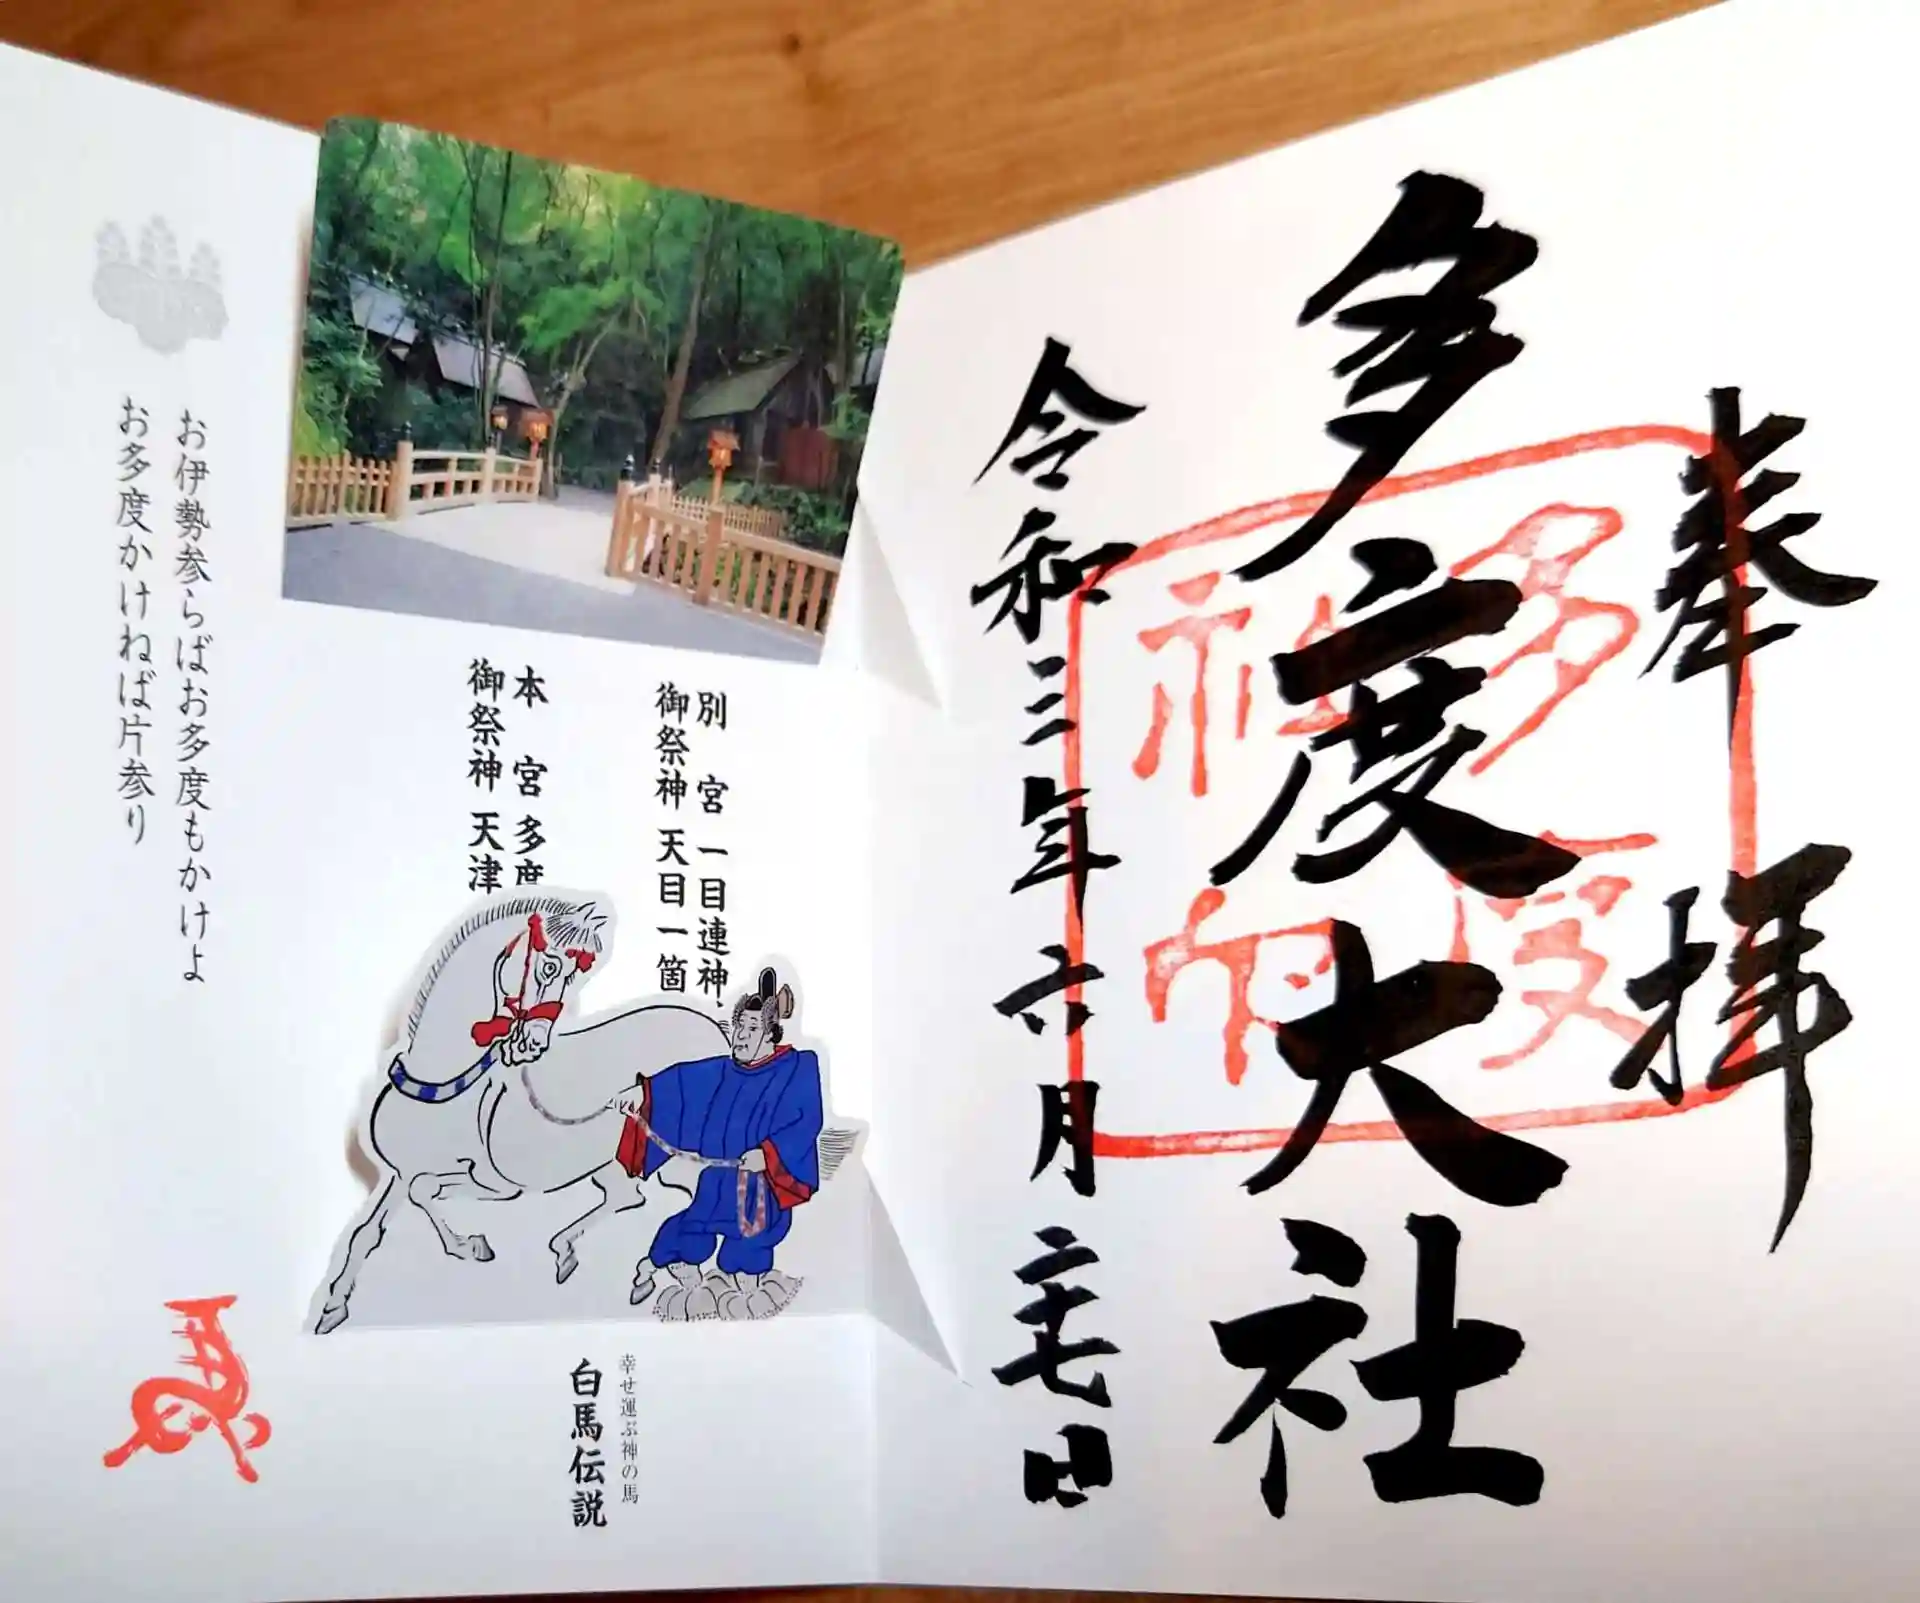 奉拝
多度大社
令和三年六月二十七日
多度神社印
別宮 一目連神
御祭神 天目一箇
本宮 多度
御祭神 天津
幸せ運ぶ神の馬
白馬伝説
お伊勢参らばお多度もかけよ
お多度かけねば片参り